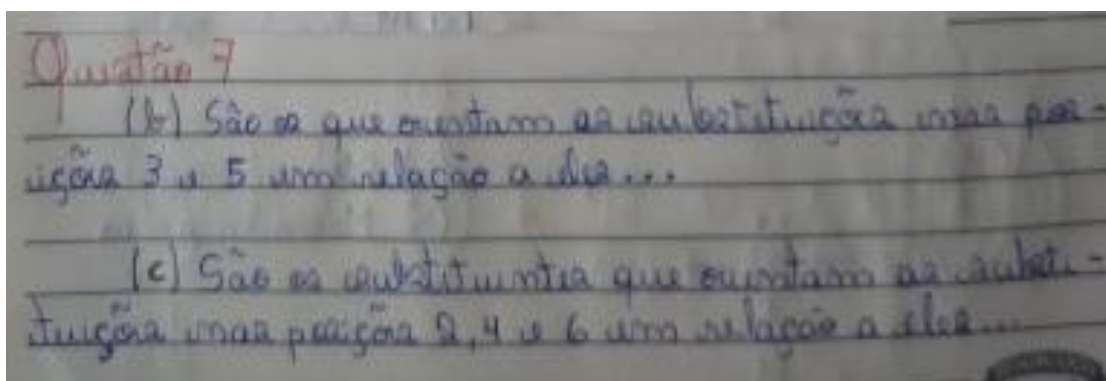 Questão 7
(b) São os que orientam as substituições nas posi-
ições 3 e 5 em relação a eles...
(c) São os substituintes que orientam as substi-
tuições nas posições 2, 4 e 6 em relação a eles...